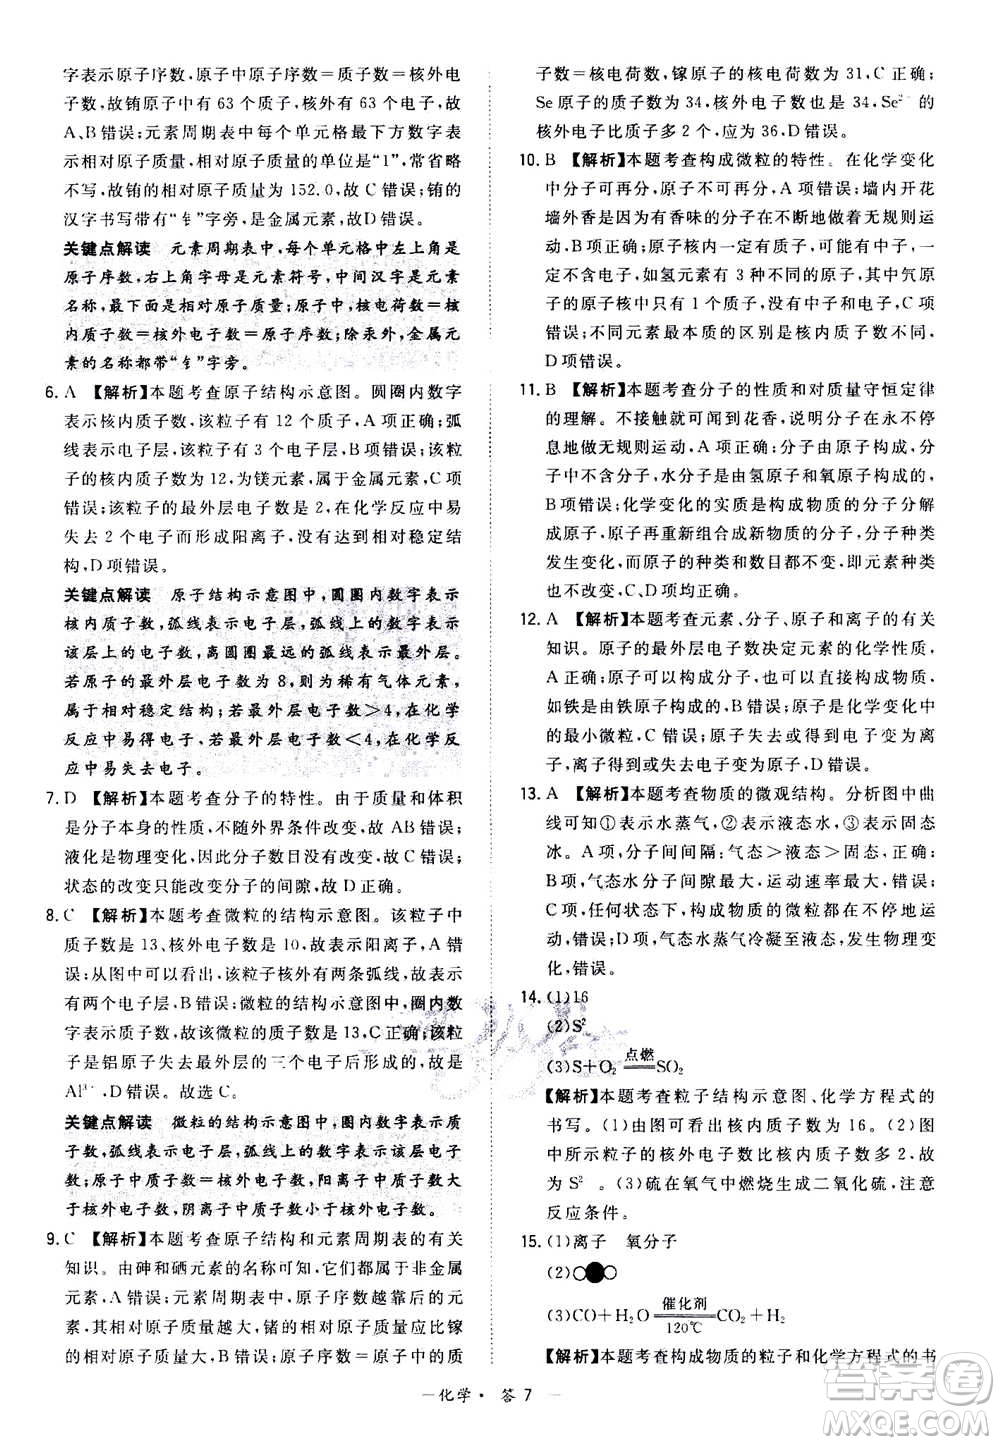 字表示原子序数,原子中原子序数=质子数=核外电
子数,故铕原子中有 63 个质子,核外有 63 个电子,故
A、B错误;元素周期表中,每个单元格最下方数字表
示相对原子质量,相对原子质量的单位是“1”,常省略
不写,故铕的相对原子质量为 152.0,故 C 错误;铕的
汉字书写带有“钅”字旁,是金属元素,故D错误。
关键点解读 元素周期表中,每个单元格中左上角是
原子序数,右上角字母是元素符号,中间汉字是元素
名称,最下面是相对原子质量;原子中,核电荷数=核
内质子数=核外电子数=原子序数;除汞外,金属元
素的名称都带“钅”字旁。
6. A 【解析】本题考查原子结构示意图。圆圈内数字
表示核内质子数,该粒子有 12 个质子,A 项正确;弧
线表示电子层,该粒子有 3 个电子层,B项错误;该粒
子的核内质子数为 12,为镁元素,属于金属元素,C项
错误;该粒子的最外层电子数是 2,在化学反应中易
失去 2 个电子而形成阳离子,达到相对稳定结
构,D 项错误。
关键点解读 原子结构示意图中,圆圈内数字表示
核内质子数,弧线表示电子层,弧线上的数字表示
该层上的电子数,离圆圈最远的弧线表示最外层。
若原子的最外层电子数为 8,则为稀有气体元素,
属于相对稳定结构;若最外层电子数>4,在化学
反应中易得电子,若最外层电子数<4,在化学反
应中易失去电子。
7. D 【解析】本题考查分子的特性。由于质量和体积
是分子本身的性质,不随外界条件改变,故 AB 错误;
液化是物理变化,因此分子数目不会改变,故 C 错误;
状态的改变只能改变分子的间隙,故 D 正确。
8. C 【解析】本题考查微粒的结构示意图。该粒子中
质子数是 13、核外电子数是 10,故表示阳离子,A 错
误;从图中可以看出,该粒子核外有两条弧线,表示
有两个电子层,B 错误;微粒的结构示意图中,圈内数
字表示质子数,故该微粒的质子数是 13,C 正确;该粒
子是铝原子失去最外层的三个电子后形成的,故是
Al ,D 错误。故选 C。
关键点解读 微粒的结构示意图中,圈内数字表示质
子数,弧线表示电子层,弧线上的数字表示该层电子
数;质子数=核外电子数,阳离子中质子数大于核外
电子数,阴离子中质子数小于核外电子数。
9. C 【解析】本题考查原子结构和元素周期表的有关
知识。由砷和硒元素的名称可知,它们都是非金属
元素,A 错误;镓、锗、砷、硒,原子序数越靠后的元素
的相对原子质量越大,锗的相对原子质量应比镓
的相对原子质量大,B 错误;原子序数=原子的质
子数=核电荷数,镓原子的核电荷数为 31,C 正确;
Se 原子的质子数为 34,核外电子数也是 34,Se² 的
核外电子比质子多 2 个,应为 36,D 错误。
10. B 【解析】本题考查构成微粒的特性。在化学变化
中分子可再分,原子不可再分,A 项错误;墙内开花
墙外香是因为有香味的分子在不断地做无规则运
动,B 项正确;原子核内一定有质子,一般有中子,但
一定不含电子;如氢元素有 3 种不同的原子,其中氕原
子的原子核中只有 1 个质子,没有中子和电子,C项
错误;不同元素最本质的区别是核内质子数不同,
D 项错误。
11. B 【解析】本题考查分子的性质和对质量守恒定律
的理解。不接触就可闻到花香,说明分子在永不停
息地做无规则运动,A 项正确;分子由原子构成,分
子中不含分子,水分子是由氢原子和氧原子构成的,
B项错误;化学变化的实质是构成物质的分子分解
成原子,原子再重新组合成新物质的分子,分子种类
发生变化,但原子的种类和数目都不变,即元素种类
也不改变,C、D项均正确。
12. A 【解析】本题考查元素、分子、原子和离子的有关
知识。原子的最外层电子数决定元素的化学性质,
A 正确;原子可以构成分子,也可以直接构成物质,
如铁是由铁原子构成的,B 错误;原子是化学变化中
的最小微粒,C 错误;原子得到或失去电子变为离子,
离子也可以得到或失去电子变为原子,D 错误。
13. A 【解析】本题考查物质的微观结构。分析图中曲
线可知①表示水蒸气,②表示液态水,③表示固态
冰。A 项,分子间间隔:气态>液态>固态,正确;
B项,气态水分子间隙最大,运动速率最大,错误;
C项,任何状态下,构成物质的微粒都在不断运动,
错误;D项,气态水蒸气冷凝至液态,发生物理变
化,错误。
14. (1)16
(2)S²
(3)S+O₂ 点燃 SO₂
【解析】本题考查粒子结构示意图、化学方程式的
书写。(1)由图可看出核内质子数为 16。(2)图
中所示粒子的核外电子数比核内质子多2,故该粒子
为 S² 。(3)硫在氧气中燃烧生成二氧化硫,注意
反应条件。
15. (1)离子 氧分子
(2)
(3)CO+H₂O 催化剂 120℃ CO₂+H₂
【解析】本题考查构成物质的粒子和化学方程式的书
—化学·答 7—
答案圈
MXQE.COM